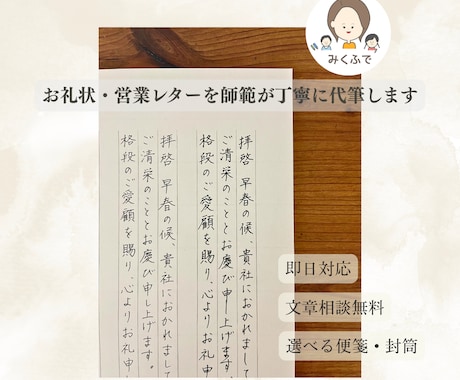 みくふで
お礼状・営業レターを師範が丁寧に代筆します
拝啓 早春の候、貴社におかれまして
ご清栄のこととお慶び申し上げます。
格段のご愛顧を賜り、心よりお礼申し
拝啓 早春の候、貴社におかれまして
ご清栄のこととお慶び申し上げます。
格段のご愛顧を賜り、心よりお礼申し
即日対応
文章相談無料
選べる便箋・封筒